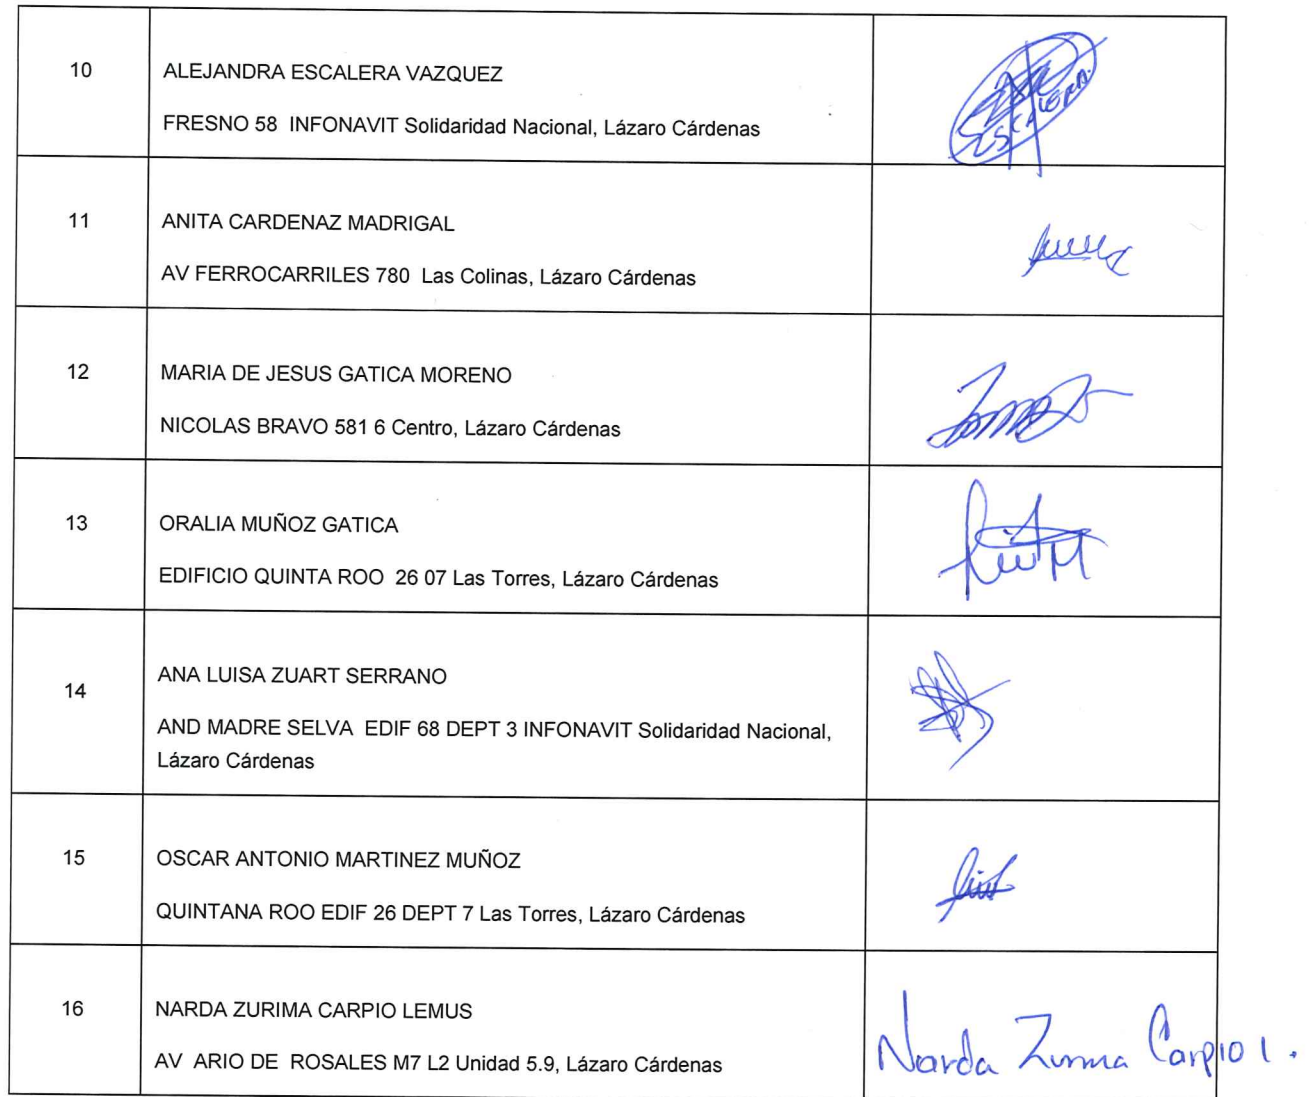 10
ALEJANDRA ESCALERA VAZQUEZ
FRESNO 58 INFONAVIT Solidaridad Nacional, Lázaro Cárdenas
ESCALERA
11
ANITA CARDENAZ MADRIGAL
AV FERROCARRILES 780 Las Colinas, Lázaro Cárdenas
12
MARIA DE JESUS GATICA MORENO
NICOLAS BRAVO 581 6 Centro, Lázaro Cárdenas
13
ORALIA MUÑOZ GATICA
EDIFICIO QUINTA ROO 26 07 Las Torres, Lázaro Cárdenas
14
ANA LUISA ZUART SERRANO
AND MADRE SELVA EDIF 68 DEPT 3 INFONAVIT Solidaridad Nacional,
Lázaro Cárdenas
15
OSCAR ANTONIO MARTINEZ MUÑOZ
QUINTANA ROO EDIF 26 DEPT 7 Las Torres, Lázaro Cárdenas
16
NARDA ZURIMA CARPIO LEMUS
AV ARIO DE ROSALES M7 L2 Unidad 5.9, Lázaro Cárdenas
Narda Zurima Carpio l.